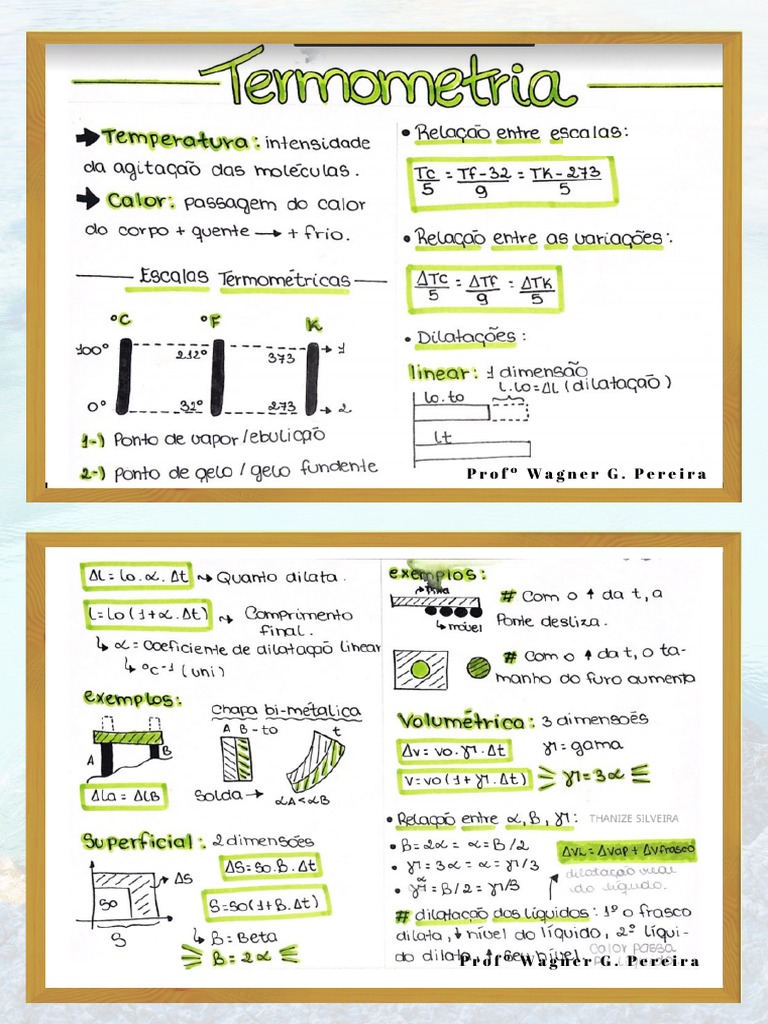 Termometria
→ Temperatura: intensidade
da agitação das moléculas.
→ Calor: passagem do calor
do corpo + quente → + frio.
Escalas Termométricas
°C °F K
100° 212° 373 → 1
0° 32° 273 → 2
1-) Ponto de vapor/ebulição
2-) Ponto de gelo / gelo fundente
• Relação entre escalas:
Tc/5 = Tf-32/9 = TK-273/5
• Relação entre as variações:
ΔTc/5 = ΔTf/9 = ΔTK/5
• Dilatações:
linear: 1 dimensão
l.lo=Δl (dilatação)
lo.to
lt
Profº Wagner G. Pereira
Δl = lo.α.Δt ↝ Quanto dilata.
l=lo(1+α.Δt) ↝ Comprimento
final.
↳ α = Coeficiente de dilatação linear
↳ °C⁻¹ (uni)
exemplos:
A B
Δla = ΔlB
chapa bi-metálica
A B-to t
Solda → αA<αB
Superficial: 2 dimensões
→ ΔS
So
S
ΔS=So.B.Δt
S=So(1+B.Δt)
↳ B = Beta
B = 2α
exemplos:
fixa
móvel
# Com o ↑ da t, a
Ponte desliza.
# Com o ↑ da t, o ta-
manho do furo aumenta
Volumétrica: 3 dimensões
Δv = vo.γ.Δt γ = gama
v=vo(1+γ.Δt) γ=3α
• Relação entre α, B, γ: THANIZE SILVEIRA
• B = 2α = α = B/2
• γ = 3α = α = γ/3
• α = B/2 = γ/3
ΔVL = ΔVap + ΔVfrasco
dilatação real
do líquido.
# dilatação dos líquidos: 1º o frasco
dilata, ↓ nível do líquido, 2º líqui-
do dilata, ↑ seu nível. Calor passa
Profº Wagner G. Pereira